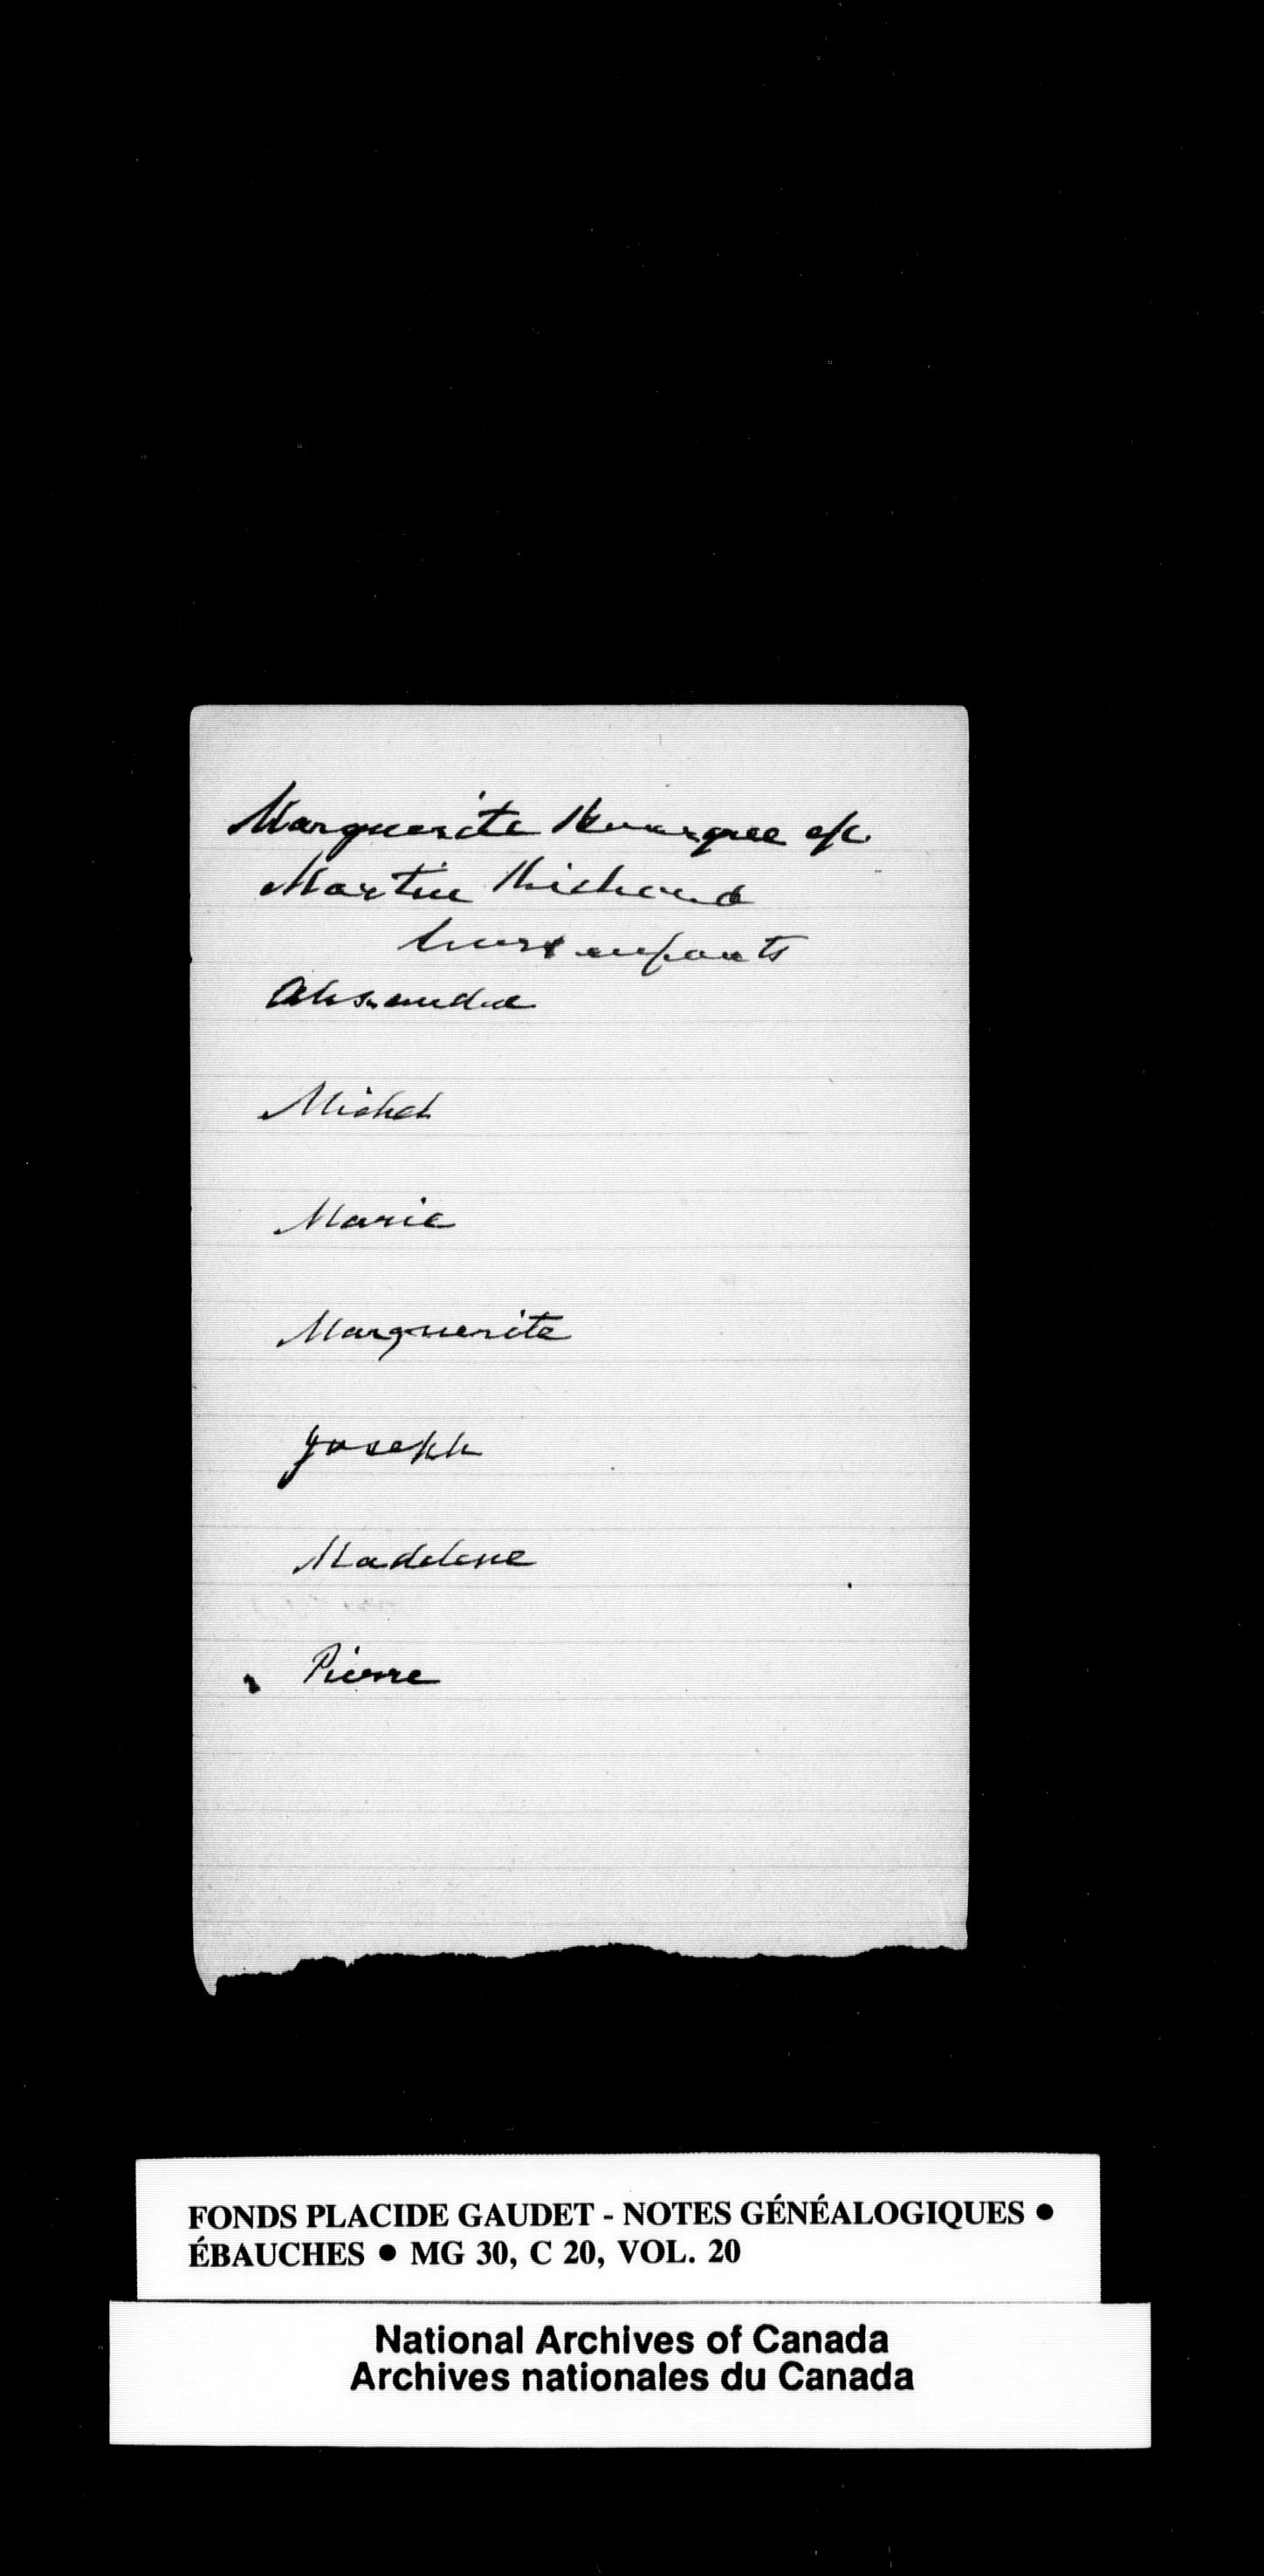 Marguerite Bourque &c.
Martin Richard
leurs enfants
Alexandre
Michel
Marie
Marguerite
Joseph
Madelene
Pierre
FONDS PLACIDE GAUDET - NOTES GÉNÉALOGIQUES ●
ÉBAUCHES ● MG 30, C 20, VOL. 20
National Archives of Canada
Archives nationales du Canada